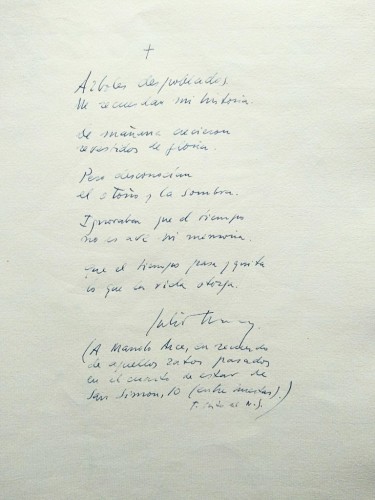 +
Arboles despojados
Me recuerdan mi historia.
De mañana crecieron
revestidos de gloria.
Pero desconocían
el otoño y la sombra.
Ignoraban que el tiempo
no es ave ni memoria.
que el tiempo pasa y quita
lo que la vida otorga.
Julio
(A Manolo en recuerdo
de aquellos ratos pasados
en el cuarto de estar de
San Simon, 10